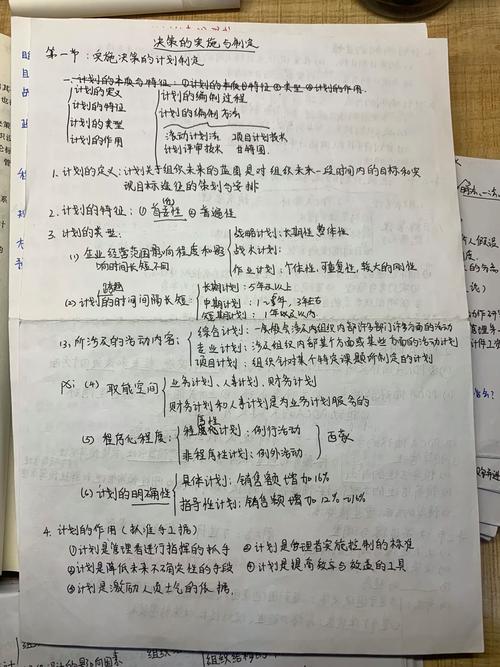 决策的实施与制定
第一节:实施决策的计划制定
一.计划的本质与特征:①计划的本质②特征③类型④计划的作用.
计划的定义
计划的特征
计划的类型
计划的作用
计划的编制过程
计划的编制方法
滚动计划法 项目计划技术
计划评审技术 甘特图
1.计划的定义:计划关于组织未来的蓝图是对组织未来一段时间内的目标和实
现目标途径的策划与安排
2.计划的特征:① 首先性 ② 普遍性
3.计划的类型:
(1)企业经营范围影响程度和影
响时间长短不同
战略计划:长期性 整体性
战术计划:
作业计划:个体性,可重复性,较大的刚性
(2)计划的时间间隔长短
跨越
长期计划:5年及以上
中期计划:
短期计划:1年及以内
(3)所涉及的活动内容:
综合计划:一般会涉及组织内部许多部门许多方面的活动
专业计划:涉及组织内部某个方面或某些方面的活动计划
项目计划:组织针对某个特定课题所制定的计划
(4)职能空间
业务计划、人事计划、财务计划
财务计划和人事计划是为业务计划服务的
(5)程序化程度:
程序性计划:例行活动
非程序性计划:例外活动
西蒙
(6)计划的明确性
具体计划:销售额增加16%
指导性计划:销售额增加12%~16%
4.计划的作用(抓准手工据)
①计划是管理者进行指挥的抓手 ②计划是管理者实施控制的标准
③计划是降低未来不确定性的手段 ④计划是提高效率与效益的工具
⑤计划是激励人员士气的依据.